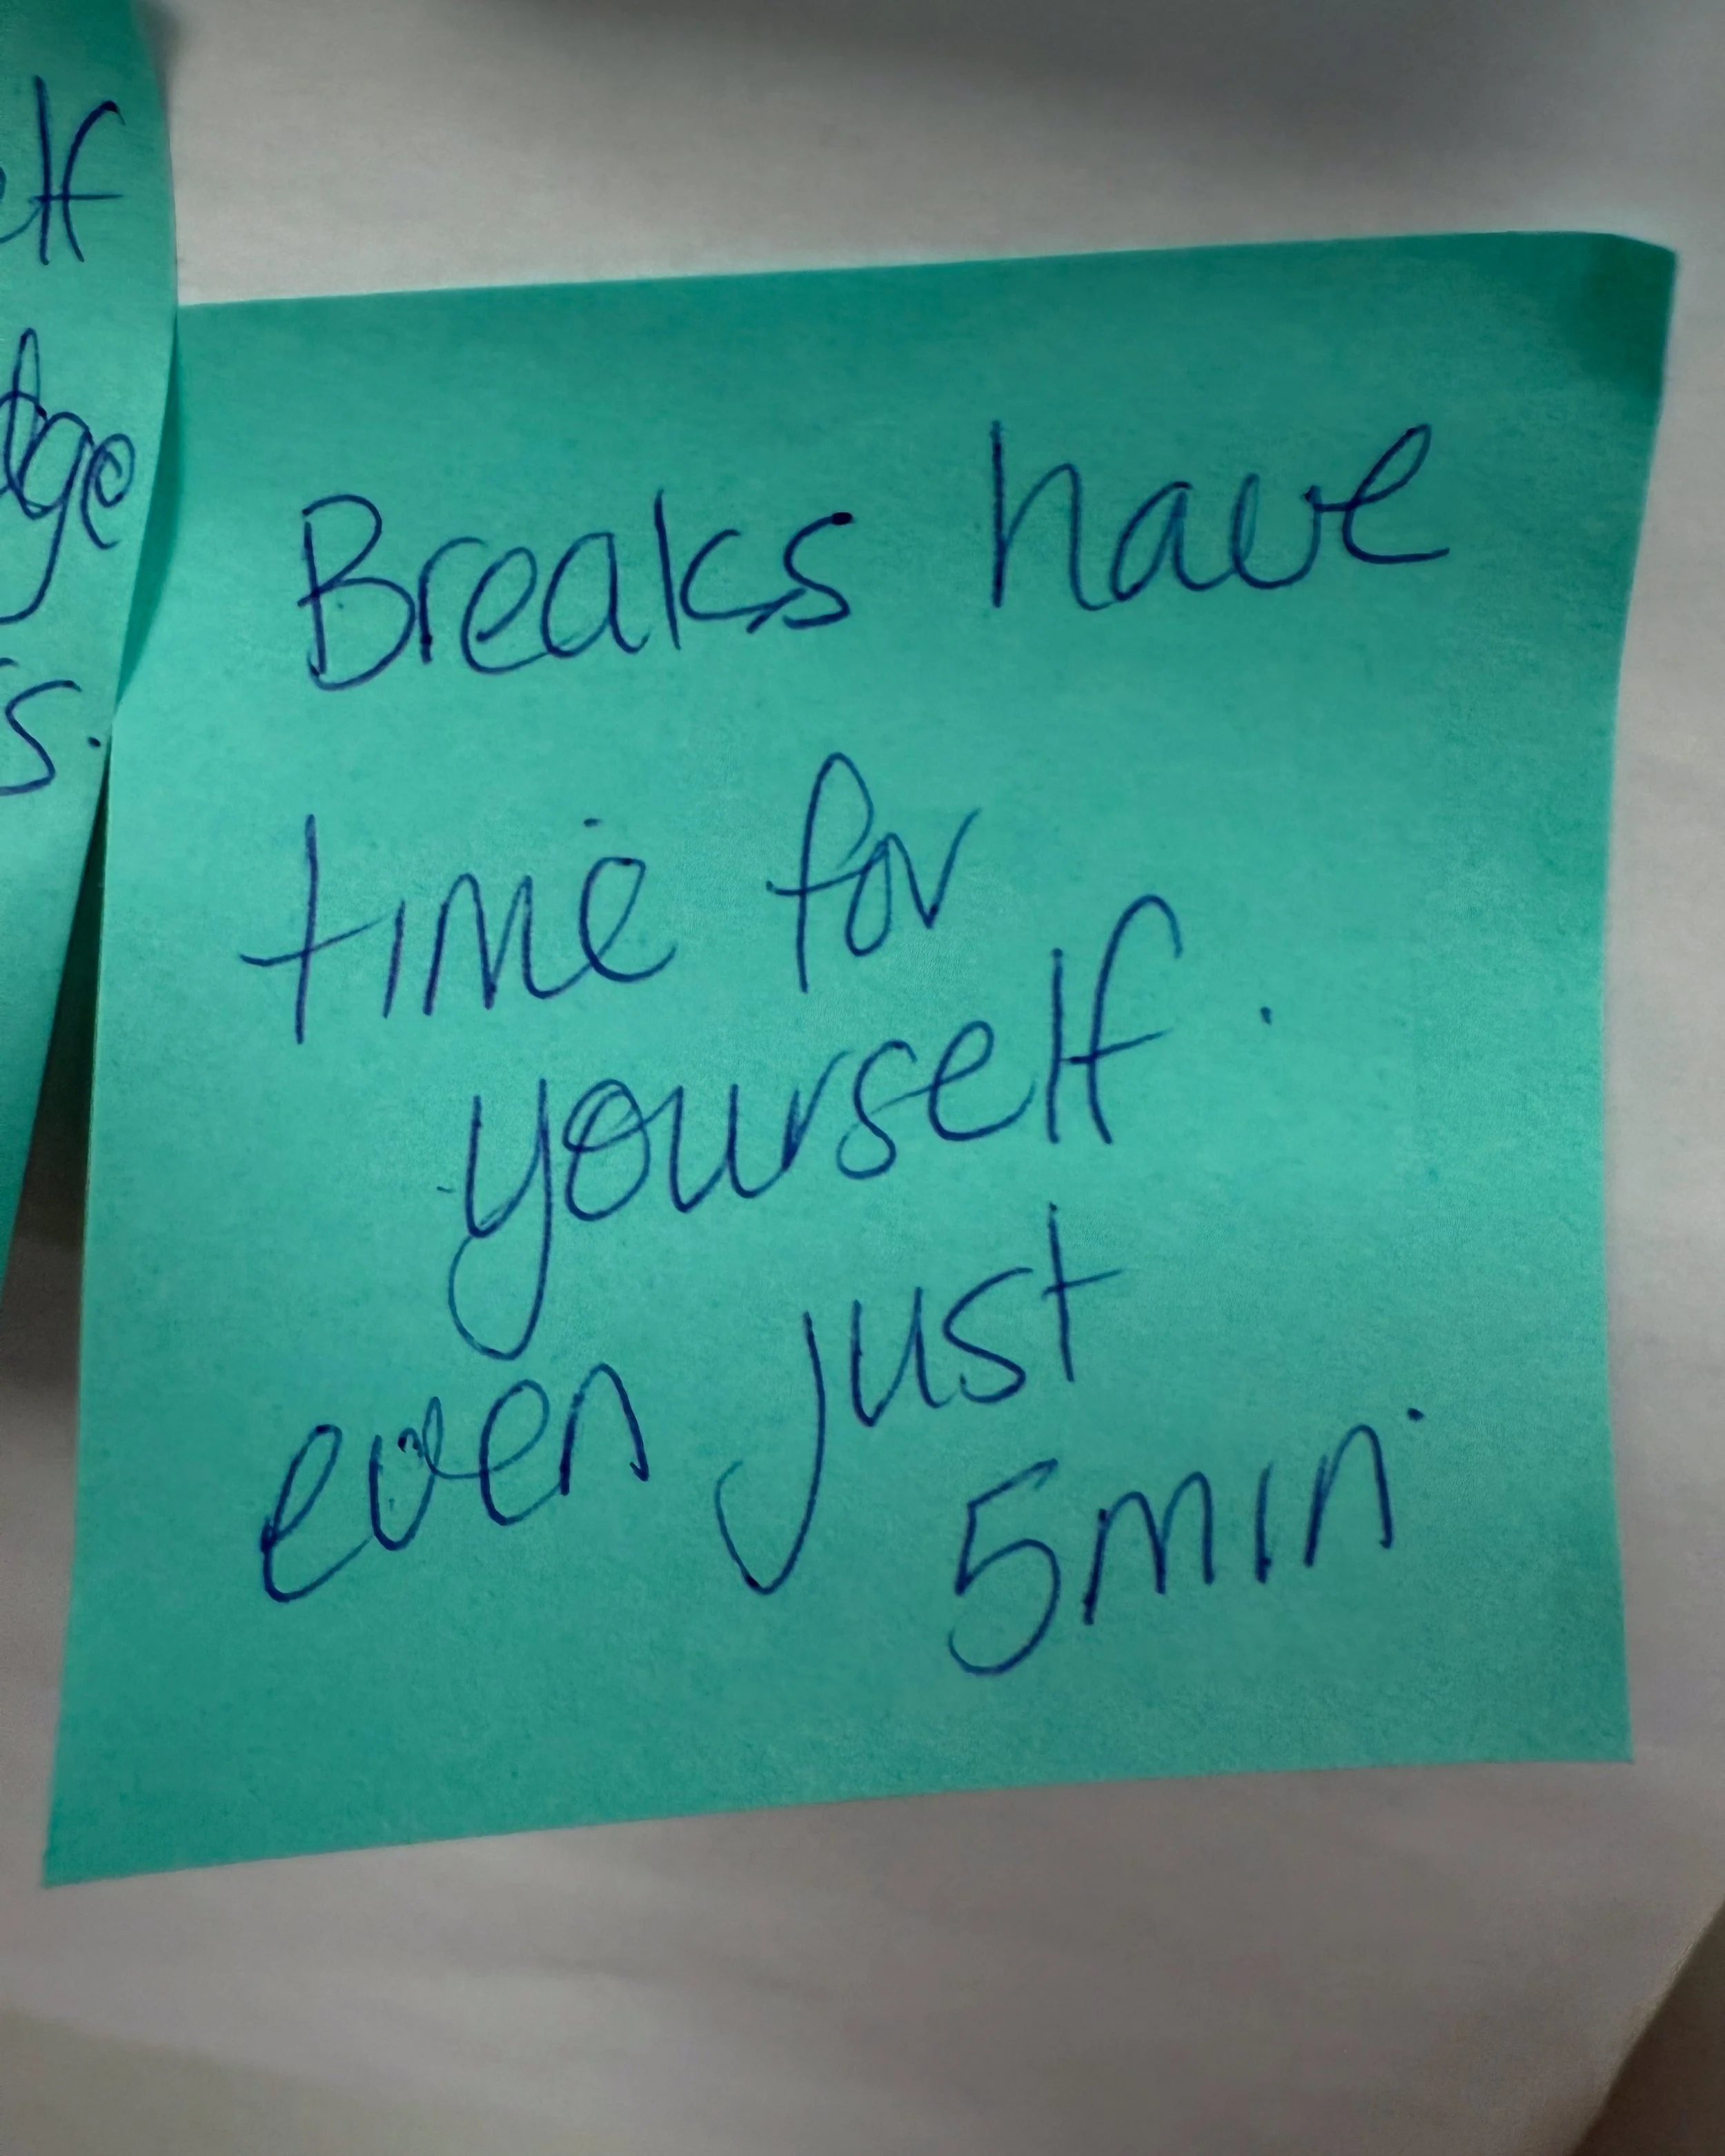 elf
dge
s.
Breaks have
time for
yourself.
even just
5min.